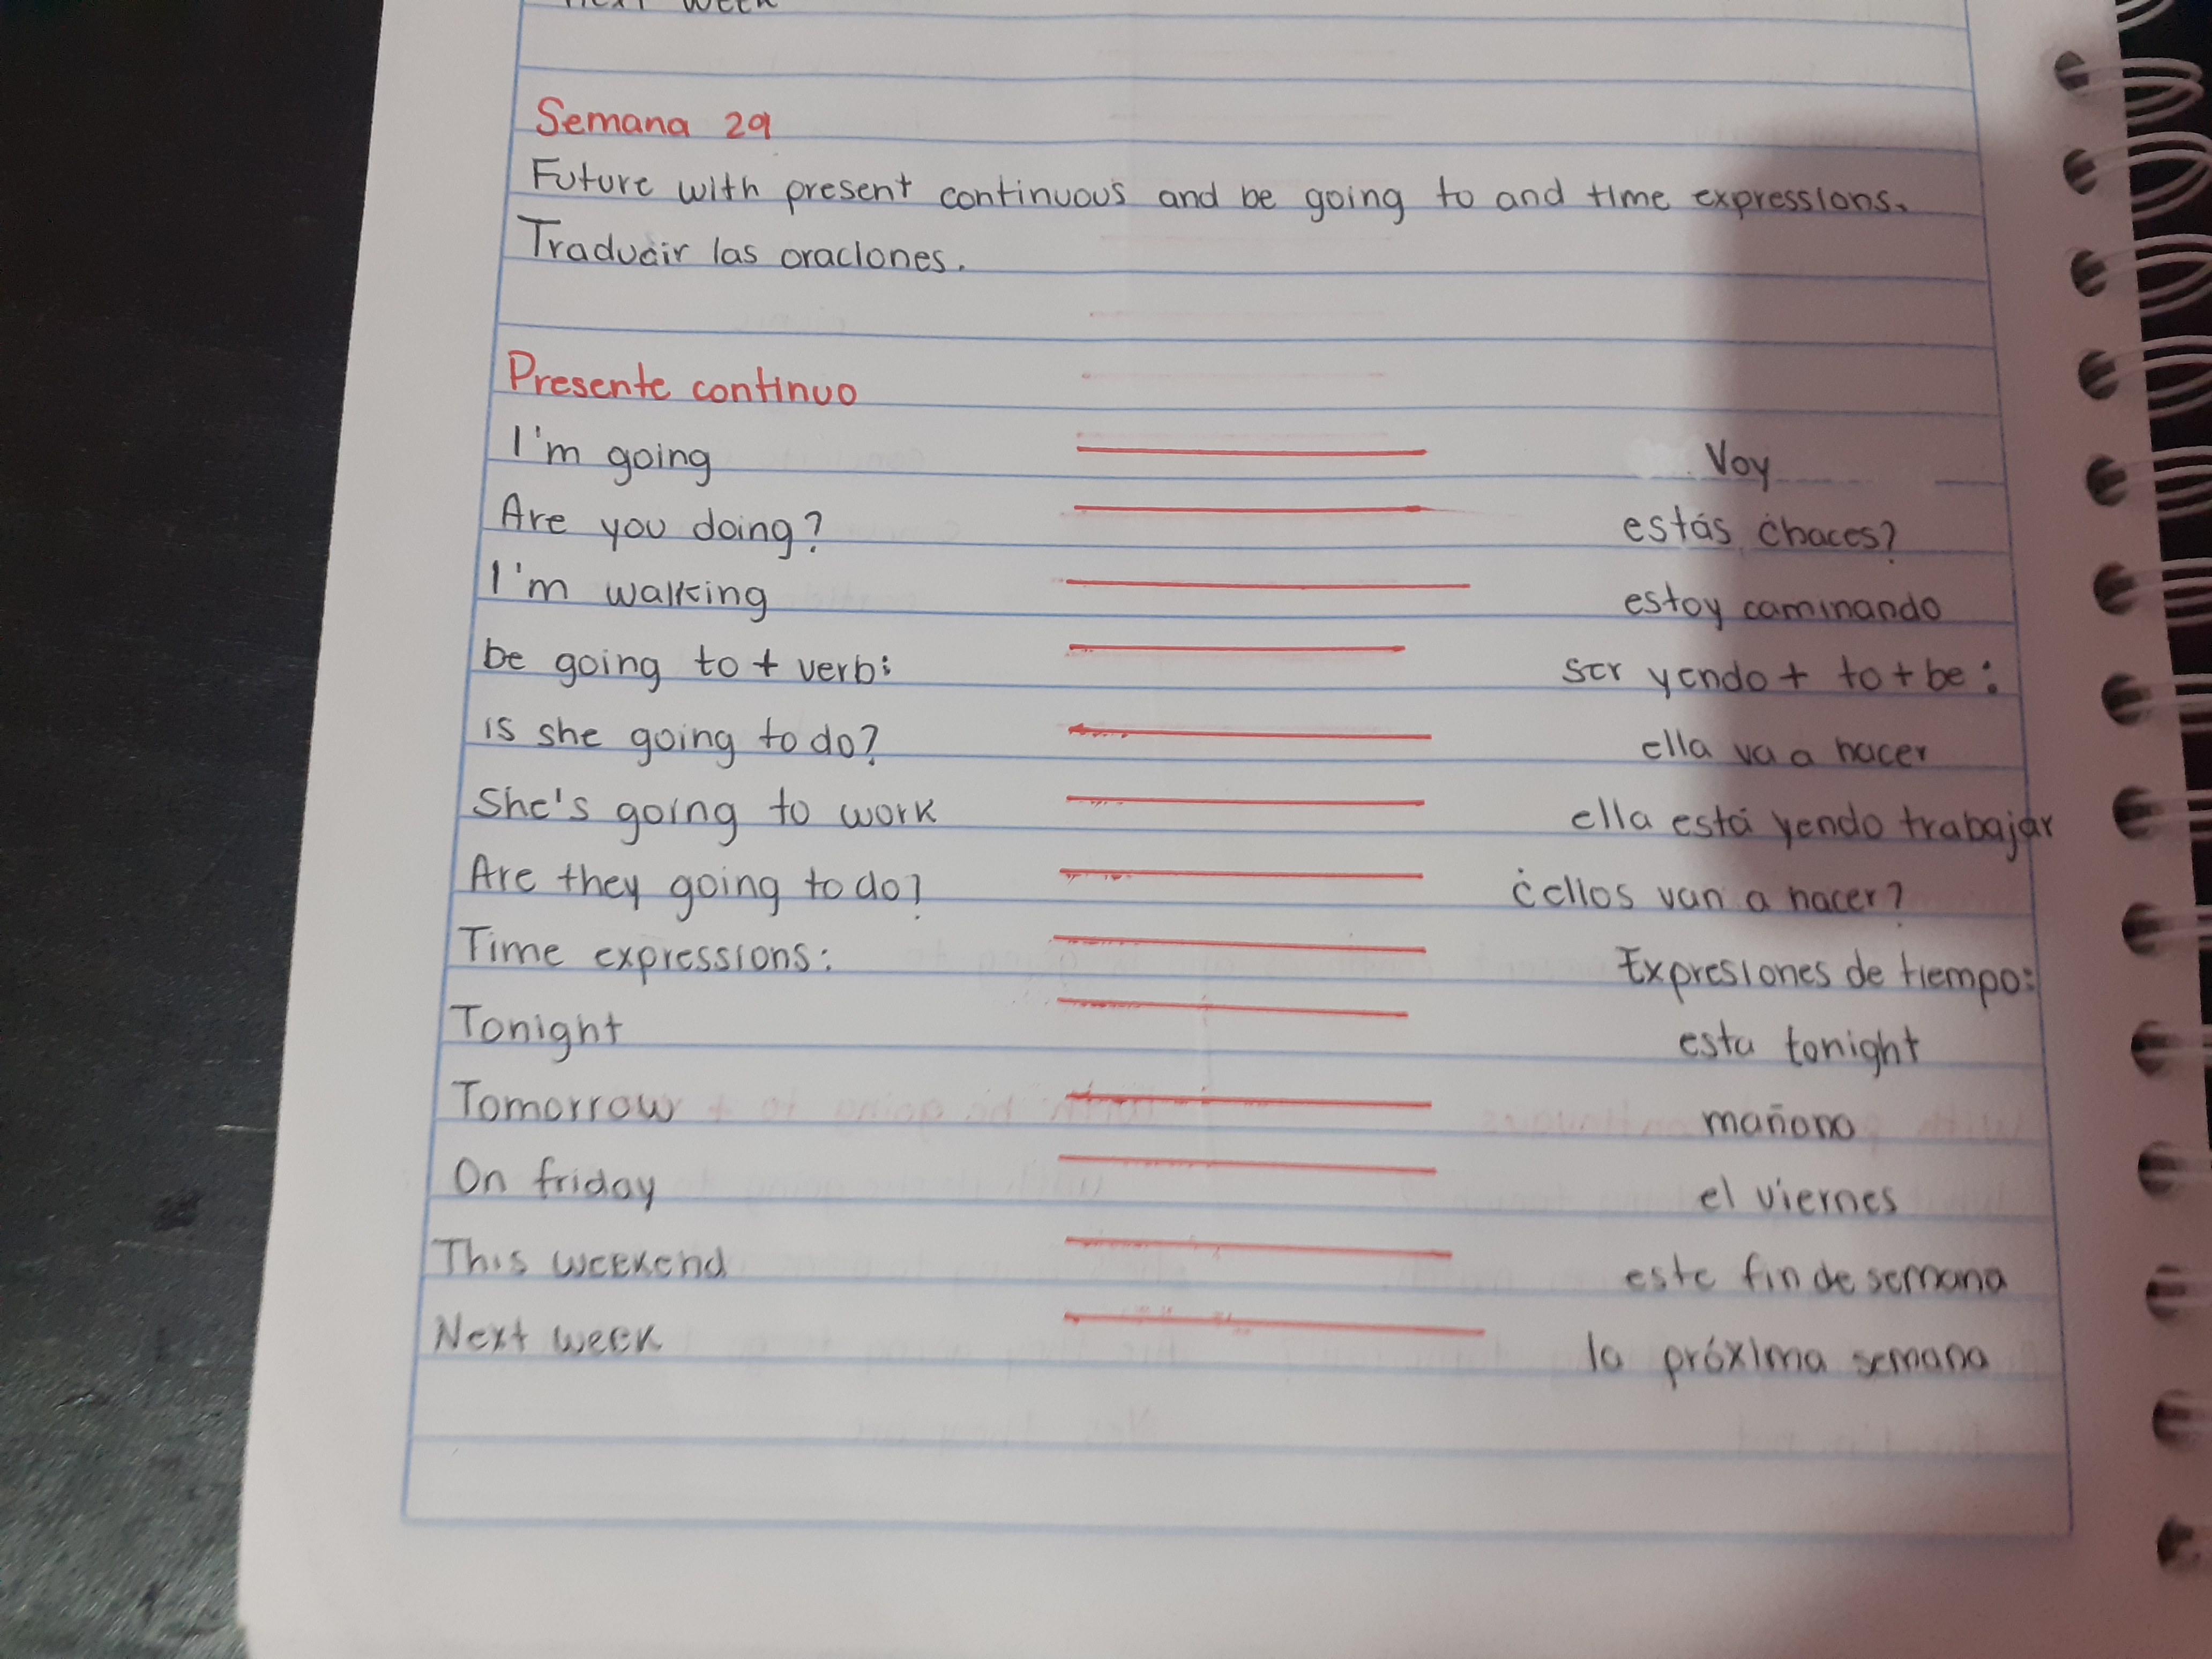 next week
Semana 29
Future with present continuous and be going to and time expressions.
Traducir las oraciones.
Presente continuo
I'm going Voy
Are you doing? estás ¿haces?
I'm walking estoy caminando
be going to + verb: ser yendo + to + be:
is she going to do? ella va a hacer
She's going to work ella está yendo trabajar
Are they going to do? ¿ellos van a hacer?
Time expressions: Expresiones de tiempo:
Tonight esta tonight
Tomorrow mañana
On friday el viernes
This weekend este fin de semana
Next week la próxima semana